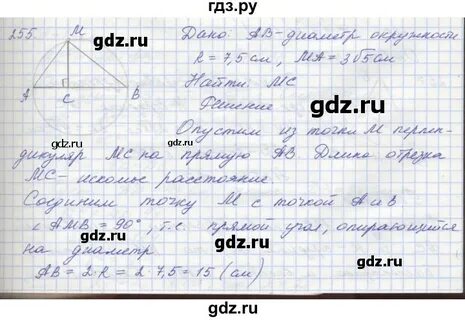 гдз.ру
255
M
A
C
B
Дано: AB-диаметр окружности
R = 7,5 см, MA = 3√5 см
Найти: MC
Решение
Опустим из точки M перпен-
дикуляр MC на прямую AB. Длина отрезка
MC - искомое расстояние
Соединим точку M с точкой A и B
∠ AMB = 90°, т.с. прямой угол, опирающийся
на диаметр
AB = 2·R = 2·7,5 = 15 (см)
gdz.ru
gdz.ru
gdz.ru
gdz.ru
gdz.ru
gdz.ru
gdz.ru
gdz.ru